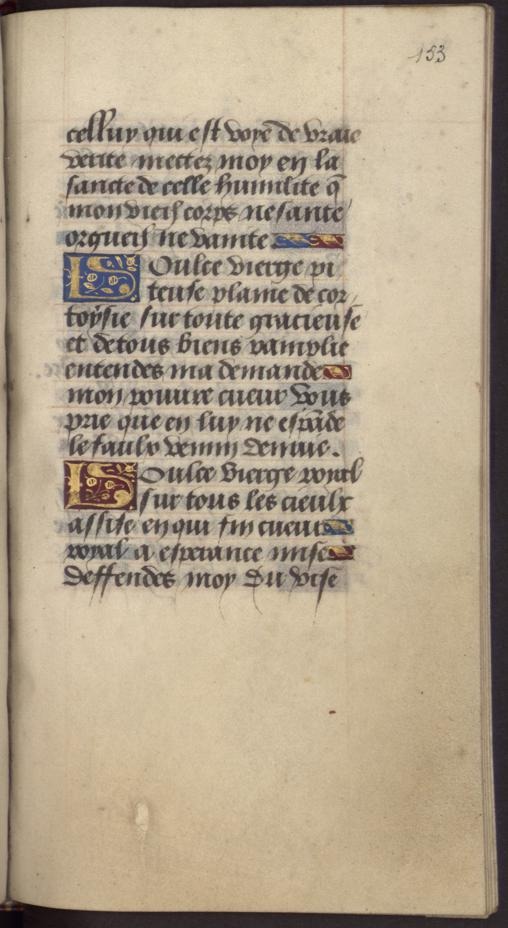 153
celluy qui est voye de vraie
verite mettez moy en la
sancte de celle humilite q̃
mon vieil corps ne sante
orgueil ne vanite
Doulce vierge pi
teuse plaine de cor
toysie sur toute gracieuse
et de tous biens ramplie
entendes ma demande
mon povure cueur vous
prie que en luy ne espãde
le faulx venin denvie.
Doulce vierge royal
sur tous les cieulx
assise en qui fin cueur
royal a esperance mise
deffendes moy du vise